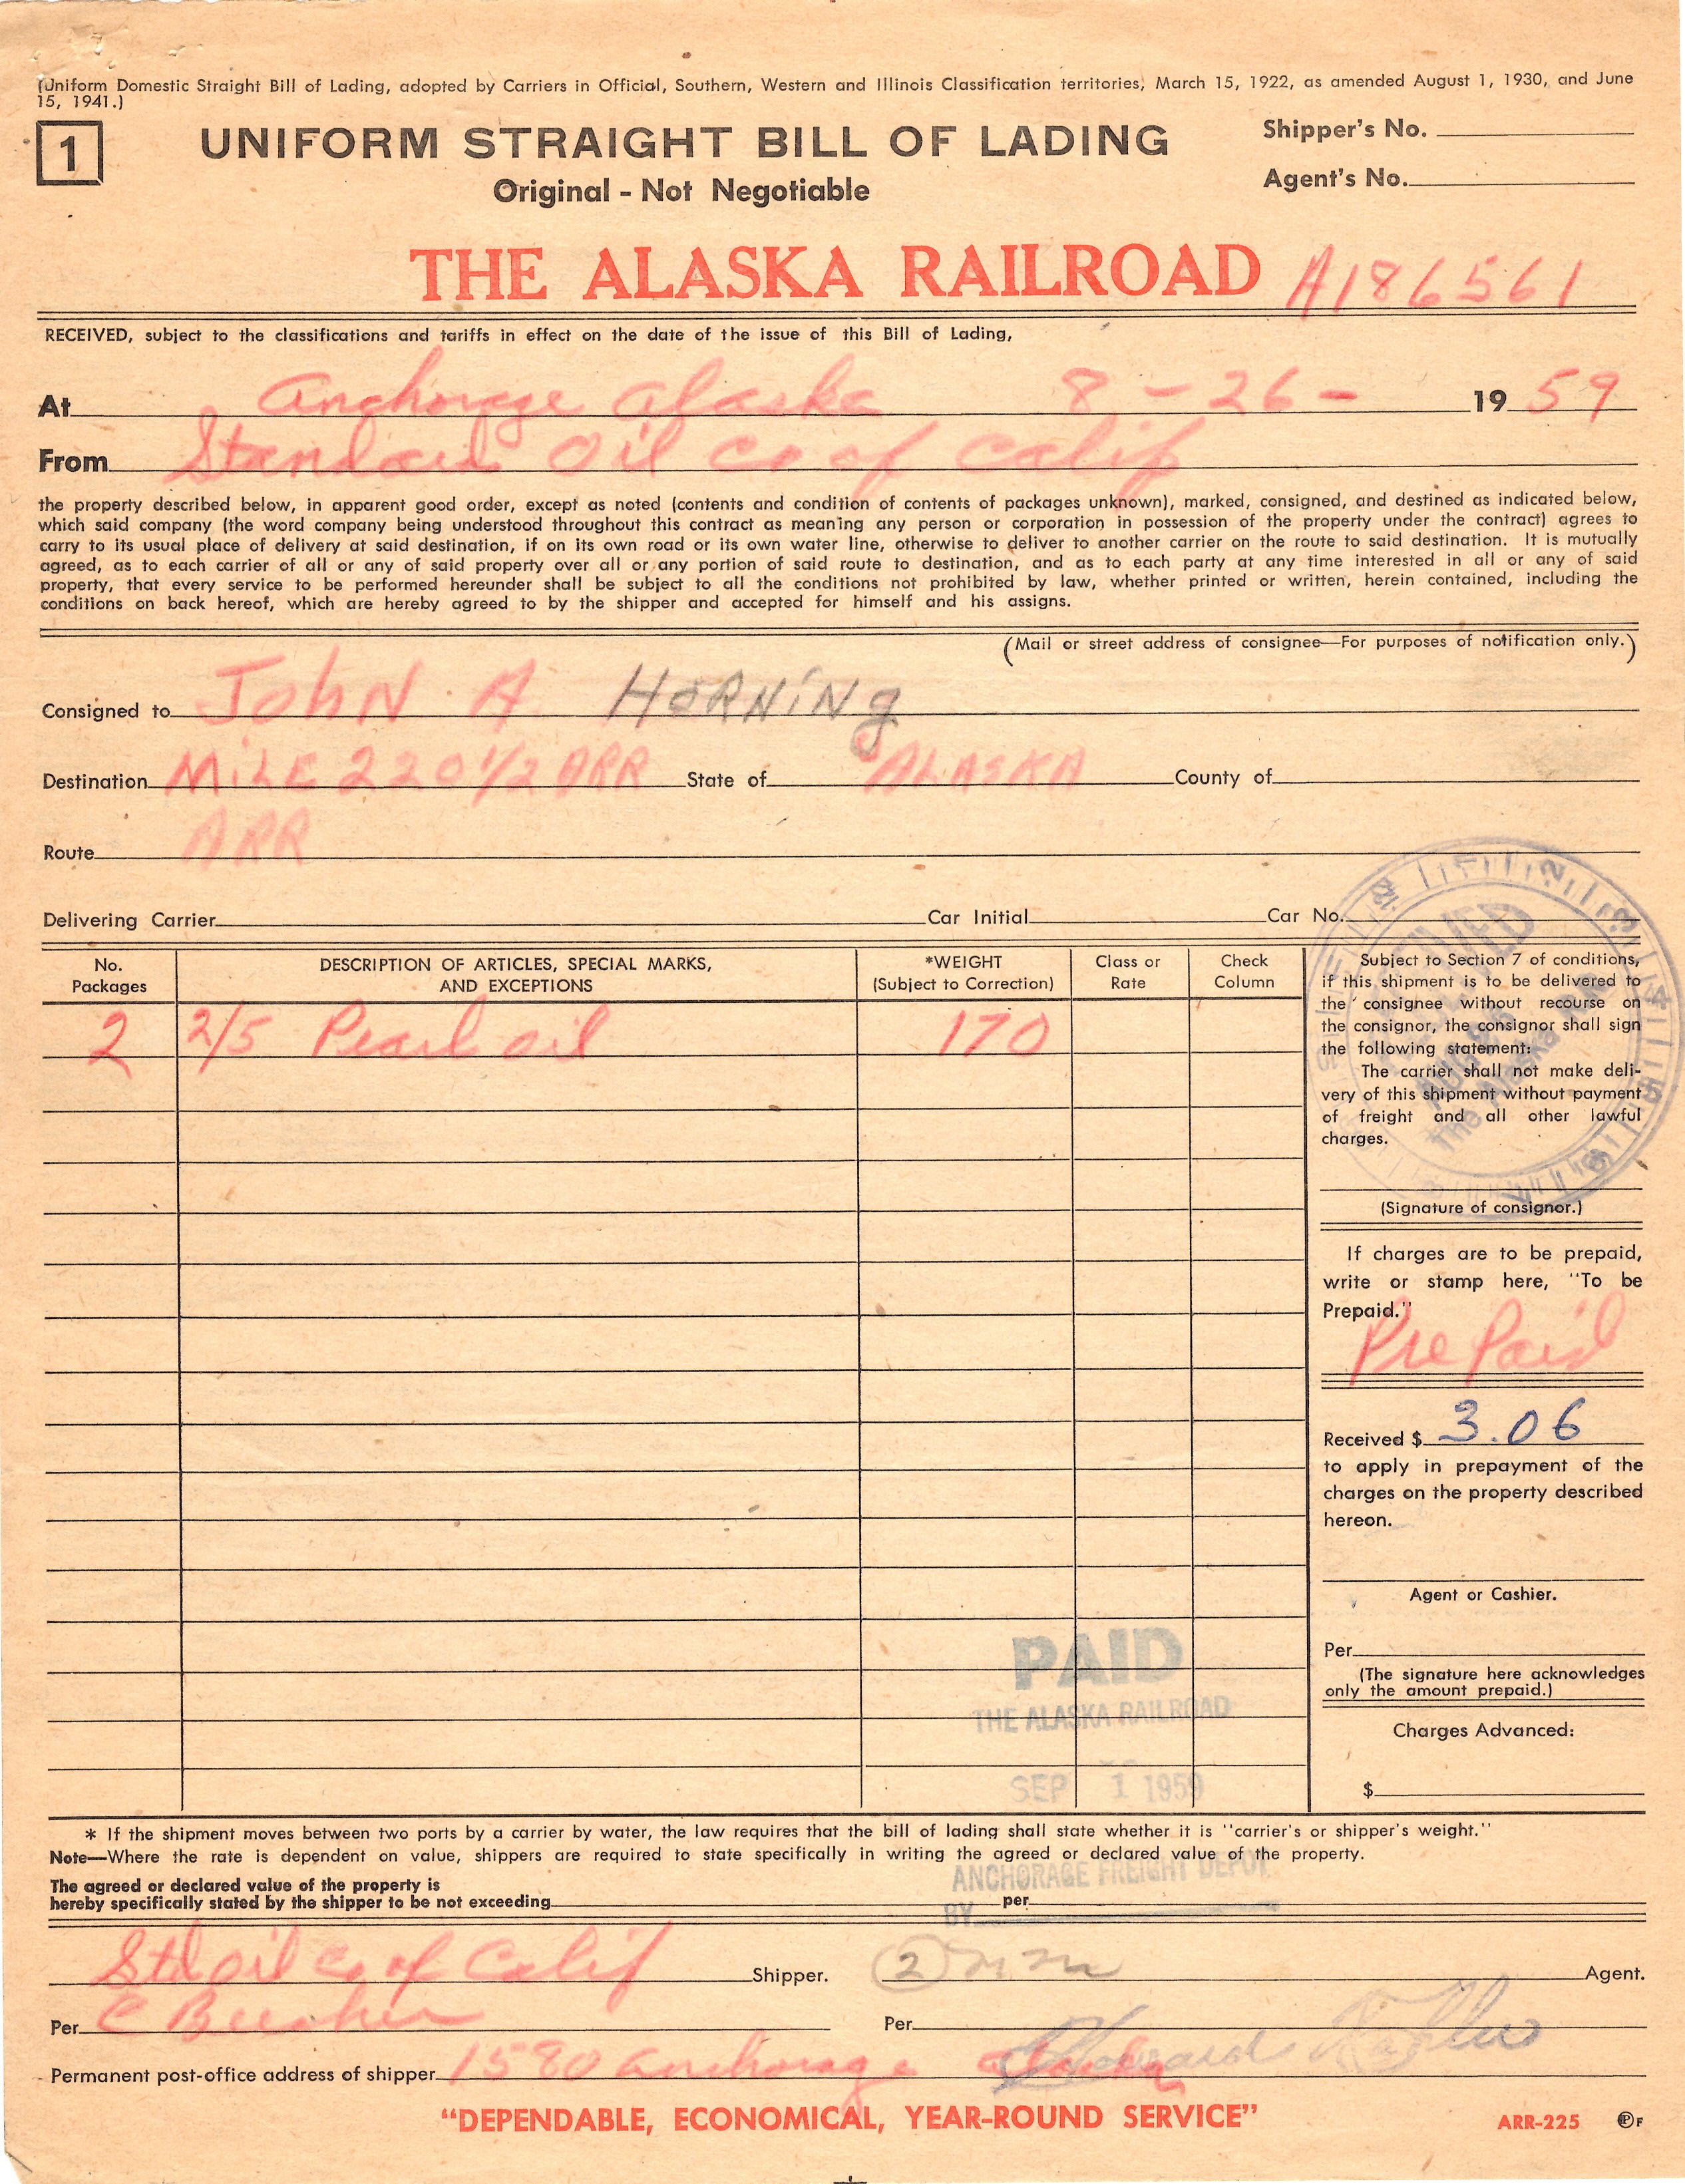 (Uniform Domestic Straight Bill of Lading, adopted by Carriers in Official, Southern, Western and Illinois Classification territories, March 15, 1922, as amended August 1, 1930, and June
15, 1941.)
1
UNIFORM STRAIGHT BILL OF LADING
Original - Not Negotiable
Shipper's No.
Agent's No.
THE ALASKA RAILROAD A186561
RECEIVED, subject to the classifications and tariffs in effect on the date of the issue of this Bill of Lading,
At Anchorage Alaska 8-26- 19 59
From Standard Oil Co of Calif
the property described below, in apparent good order, except as noted (contents and condition of contents of packages unknown), marked, consigned, and destined as indicated below,
which said company (the word company being understood throughout this contract as meaning any person or corporation in possession of the property under the contract) agrees to
carry to its usual place of delivery at said destination, if on its own road or its own water line, otherwise to deliver to another carrier on the route to said destination. It is mutually
agreed, as to each carrier of all or any of said property over all or any portion of said route to destination, and as to each party at any time interested in all or any of said
property, that every service to be performed hereunder shall be subject to all the conditions not prohibited by law, whether printed or written, herein contained, including the
conditions on back hereof, which are hereby agreed to by the shipper and accepted for himself and his assigns.
(Mail or street address of consignee—For purposes of notification only.)
Consigned to JOHN A HORNiNg
Destination MiLE 220 1/2 ARR State of ALASKA County of
Route ARR
Delivering Carrier Car Initial Car No.
No.
Packages
DESCRIPTION OF ARTICLES, SPECIAL MARKS,
AND EXCEPTIONS
*WEIGHT
(Subject to Correction)
Class or
Rate
Check
Column
2 2/5 Pearl oil 170
Subject to Section 7 of conditions,
if this shipment is to be delivered to
the consignee without recourse on
the consignor, the consignor shall sign
the following statement:
The carrier shall not make deli-
very of this shipment without payment
of freight and all other lawful
charges.
(Signature of consignor.)
If charges are to be prepaid,
write or stamp here, "To be
Prepaid."
PrePaid
Received $ 3.06
to apply in prepayment of the
charges on the property described
hereon.
Agent or Cashier.
Per
(The signature here acknowledges
only the amount prepaid.)
Charges Advanced:
$
PAID
THE ALASKA RAILROAD
SEP 1 1959
ANCHORAGE FREIGHT DEPOT
BY
* If the shipment moves between two ports by a carrier by water, the law requires that the bill of lading shall state whether it is "carrier's or shipper's weight."
Note—Where the rate is dependent on value, shippers are required to state specifically in writing the agreed or declared value of the property.
The agreed or declared value of the property is
hereby specifically stated by the shipper to be not exceeding per
Std oil Co of Calif Shipper. 2 Agent.
Per C Per Howard
Permanent post-office address of shipper 1580 Anchorage Alaska
"DEPENDABLE, ECONOMICAL, YEAR-ROUND SERVICE"
ARR-225 P F